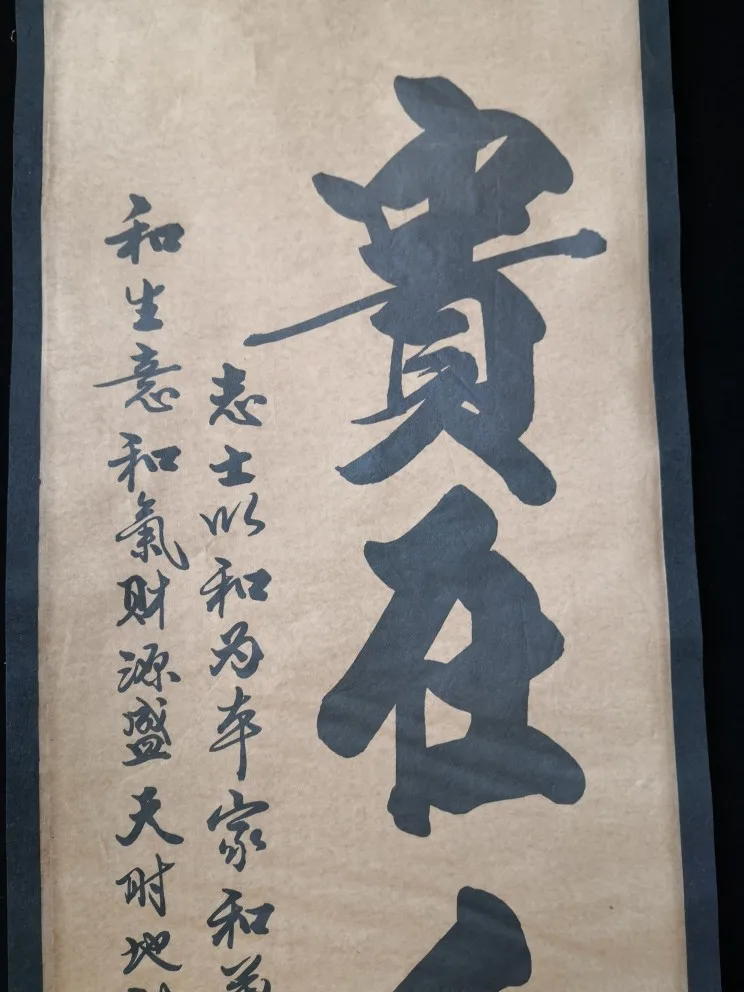 貴在
志士以和为本家和
和生意和氣财源盛天时地